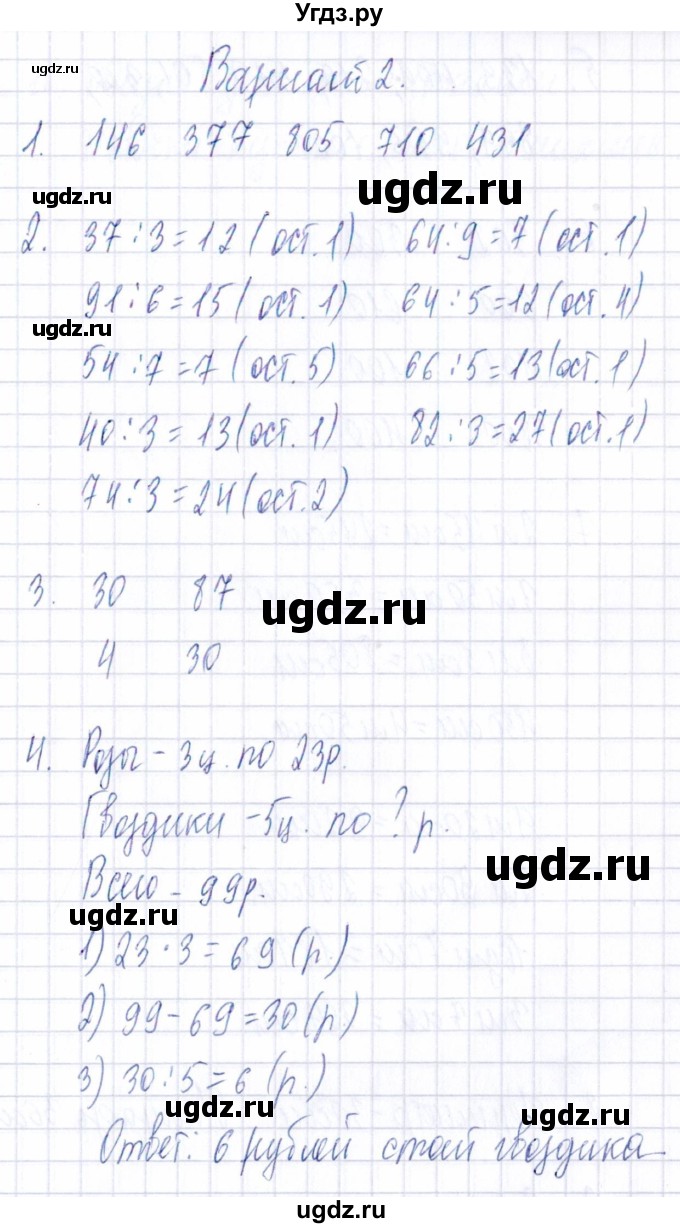 Угдз.ру
ugdz.ru
Вариант 2.
1. 146 377 805 710 431
ugdz.ru
ugdz.ru
2. 37:3=12(ост.1) 64:9=7(ост.1)
91:6=15(ост.1) 64:5=12(ост.4)
ugdz.ru
54:7=7(ост.5) 66:5=13(ост.1)
40:3=13(ост.1) 82:3=27(ост.1)
ugdz.ru
74:3=24(ост.2)
3. 30 87
ugdz.ru
ugdz.ru
4 30
4. Розы - 3ц. по 23р.
Гвоздики - 5ц. по ? р.
ugdz.ru
Всего - 99р.
ugdz.ru
1) 23·3=69(р.)
2) 99-69=30(р.)
3) 30:5=6(р.)
ugdz.ru
ugdz.ru
Ответ: 6 рублей стоит гвоздика
ugdz.ru